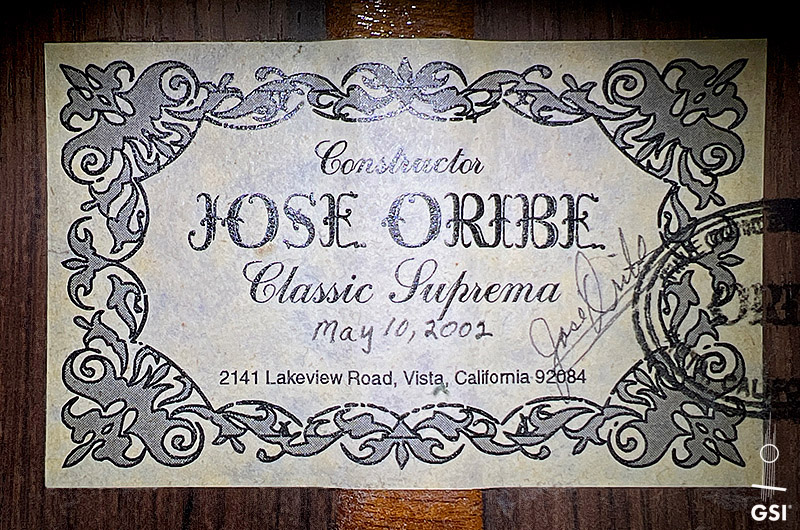 Constructor
JOSE ORIBE
Classic Suprema
May 10, 2002
Jose Oribe
2141 Lakeview Road, Vista, California 92084
GSI